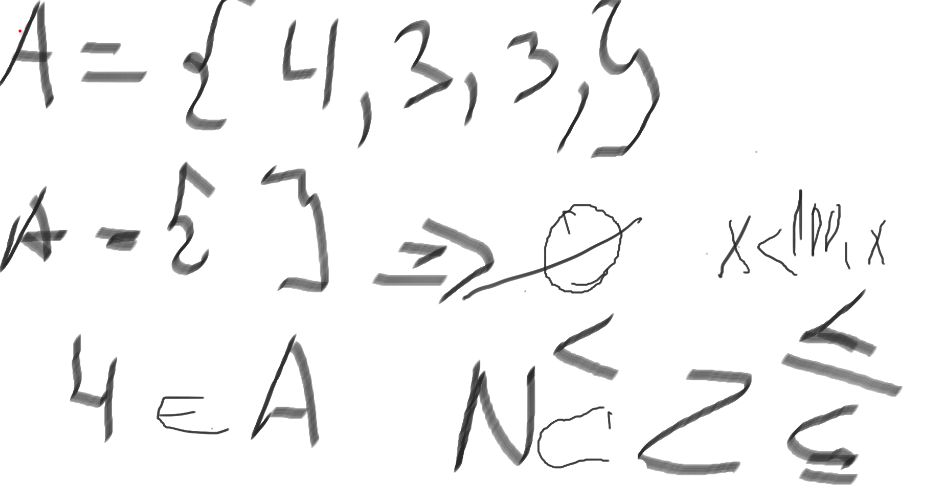 A = { 4, 3, 3, }
A = { } => ∅ x < 100, x
4 ∈ A N ⊂ Z < ≤ ⊆